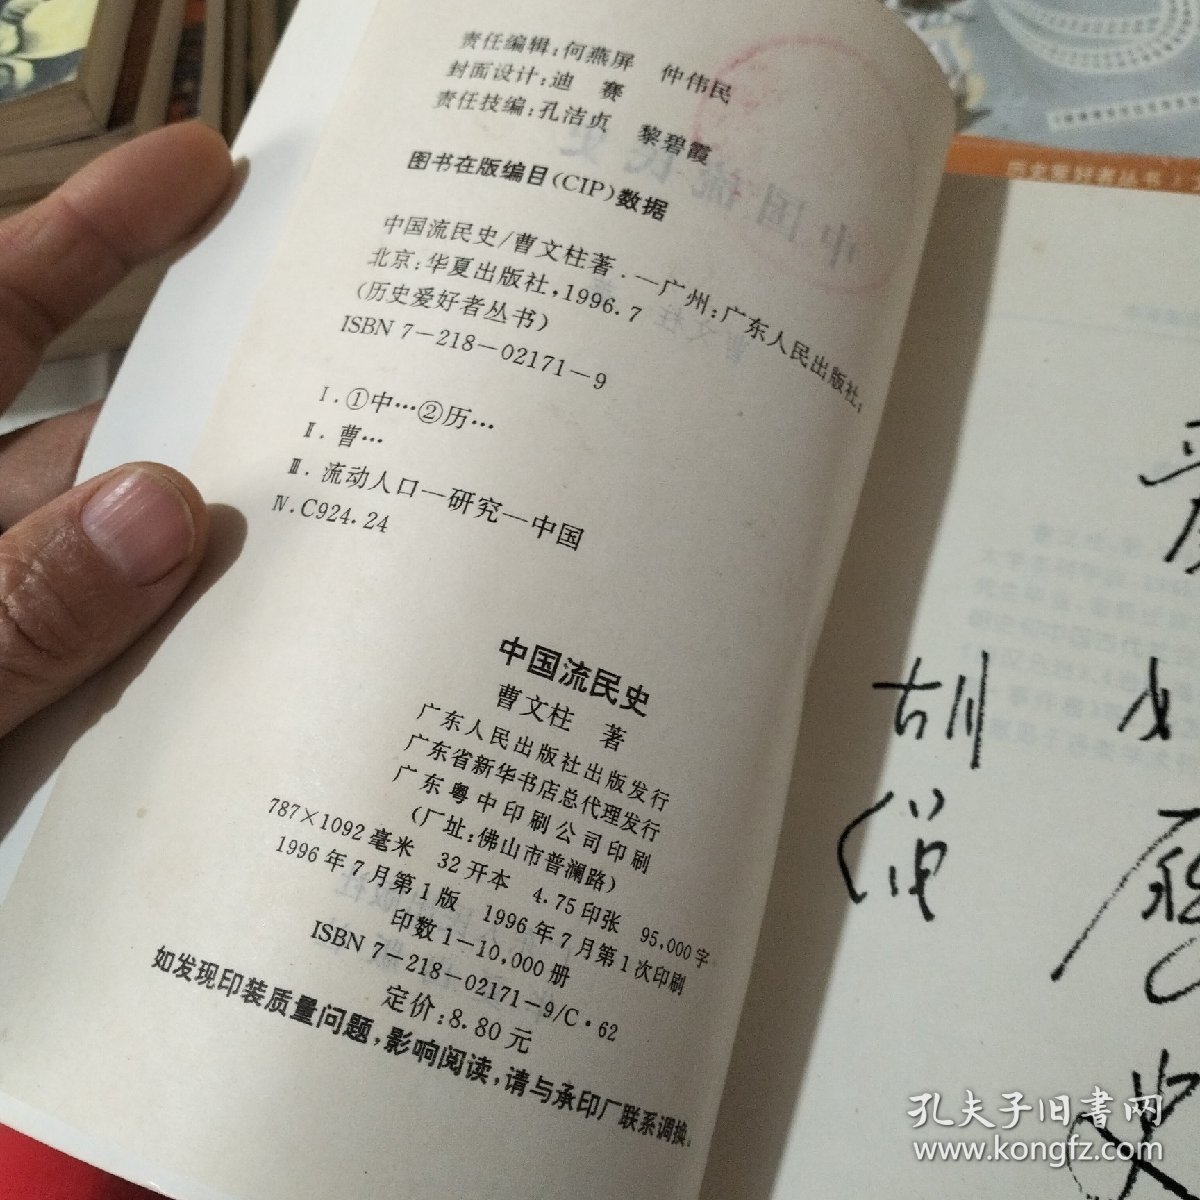 责任编辑：何燕屏　仲伟民
封面设计：迪　赛
责任技编：孔洁贞　黎碧霞
图书在版编目(CIP)数据
中国流民史/曹文柱著．—广州：广东人民出版社；
北京：华夏出版社，1996.7
(历史爱好者丛书)
ISBN 7－218－02171－9
Ⅰ．①中…②历…
Ⅱ．曹…
Ⅲ．流动人口—研究—中国
Ⅳ．C924.24
中国流民史
曹文柱　著
广东人民出版社出版发行
广东省新华书店总代理发行
广东粤中印刷公司印刷
(厂址：佛山市普澜路)
787×1092毫米　32开本　4.75印张　95,000字
1996年7月第1版　1996年7月第1次印刷
印数1－10,000册
ISBN 7－218－02171－9/C·62
定价：8.80元
如发现印装质量问题，影响阅读，请与承印厂联系调换。
历史爱好者丛书
中国流民史
曹文柱
胡
孔夫子旧书网
www.kongfz.com